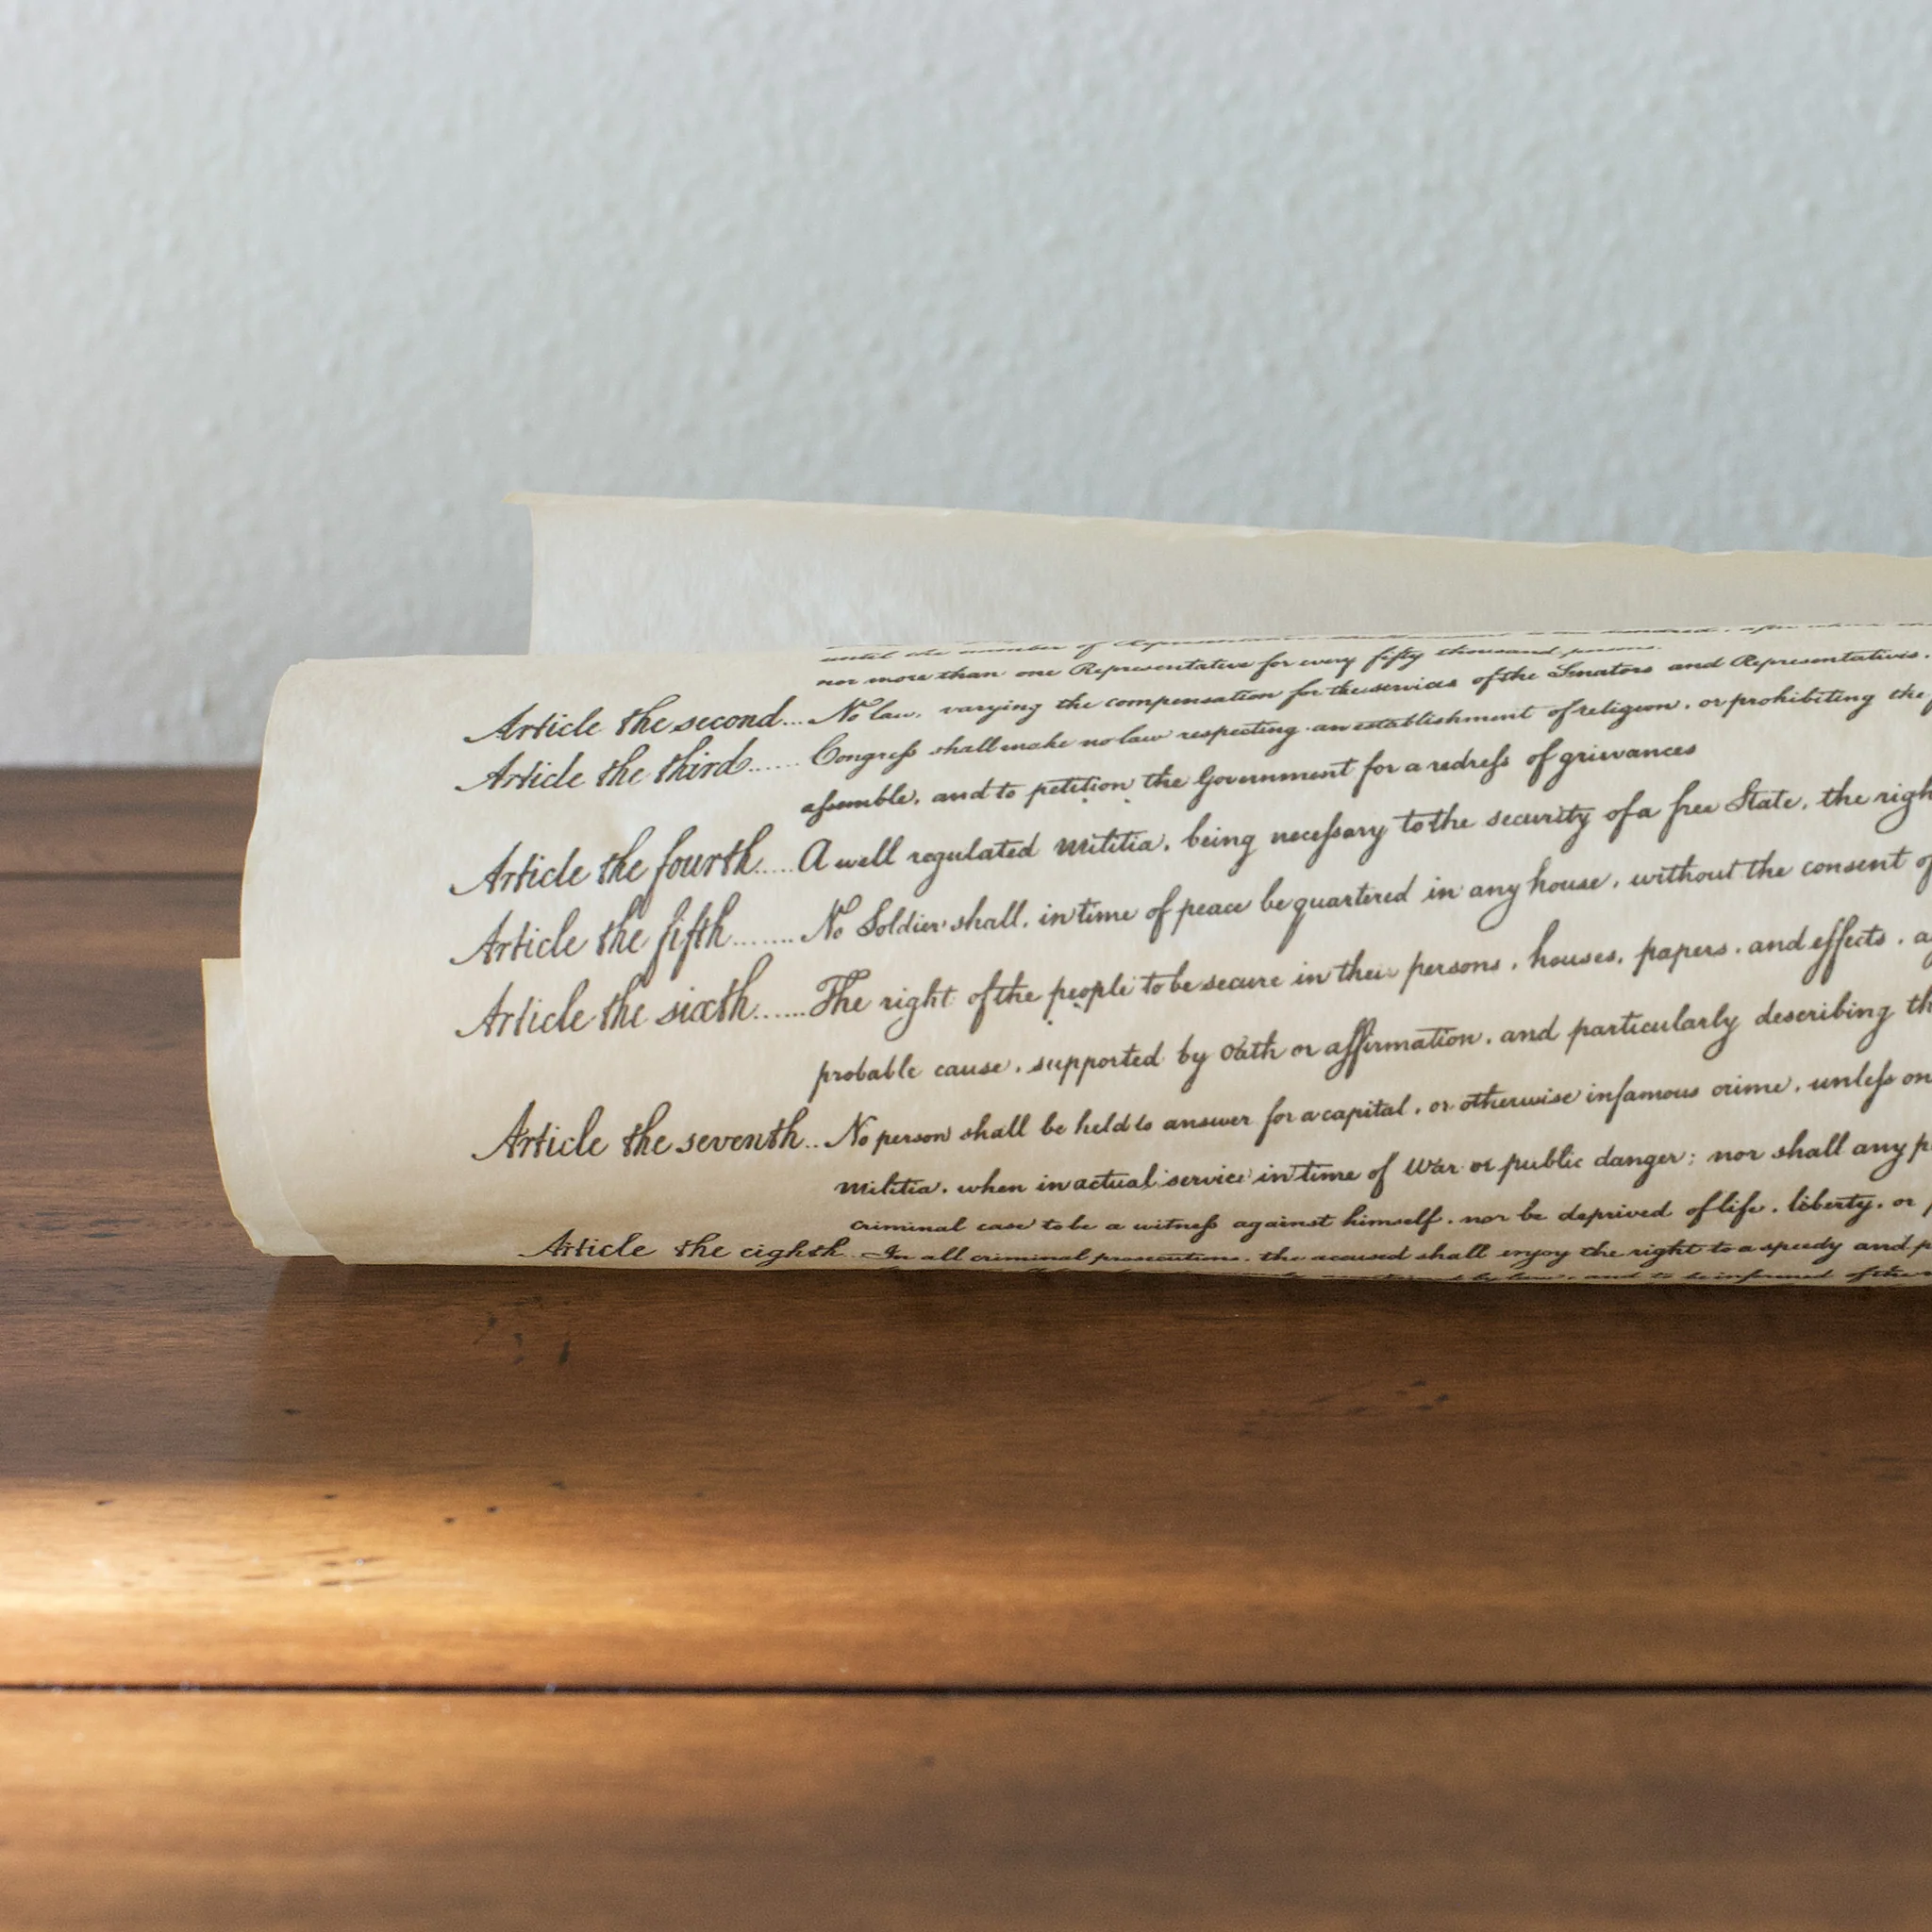 until the number of Representatives
nor more than one Representative for every fifty thousand persons.
Article the second... No law, varying the compensation for the services of the Senators and Representatives.
Article the third...... Congreſs shall make no law respecting an establishment of religion, or prohibiting the
aſsemble, and to petition the Government for a redreſs of grievances
Article the fourth..... A well regulated Militia, being neceſsary to the security of a free State, the righ
Article the fifth....... No Soldier shall, in time of peace be quartered in any house, without the consent of
Article the sixth...... The right of the people to be secure in their persons, houses, papers, and effects, a
probable cause, supported by Oath or affirmation, and particularly describing th
Article the seventh.. No person shall be held to answer for a capital, or otherwise infamous crime, unleſs on
Militia, when in actual service in time of War or public danger; nor shall any p
criminal case to be a witneſs against himself, nor be deprived of life, liberty, or p
Article the eighth.. In all criminal prosecutions, the accused shall enjoy the right to a speedy and p
by law, and to be informed of the